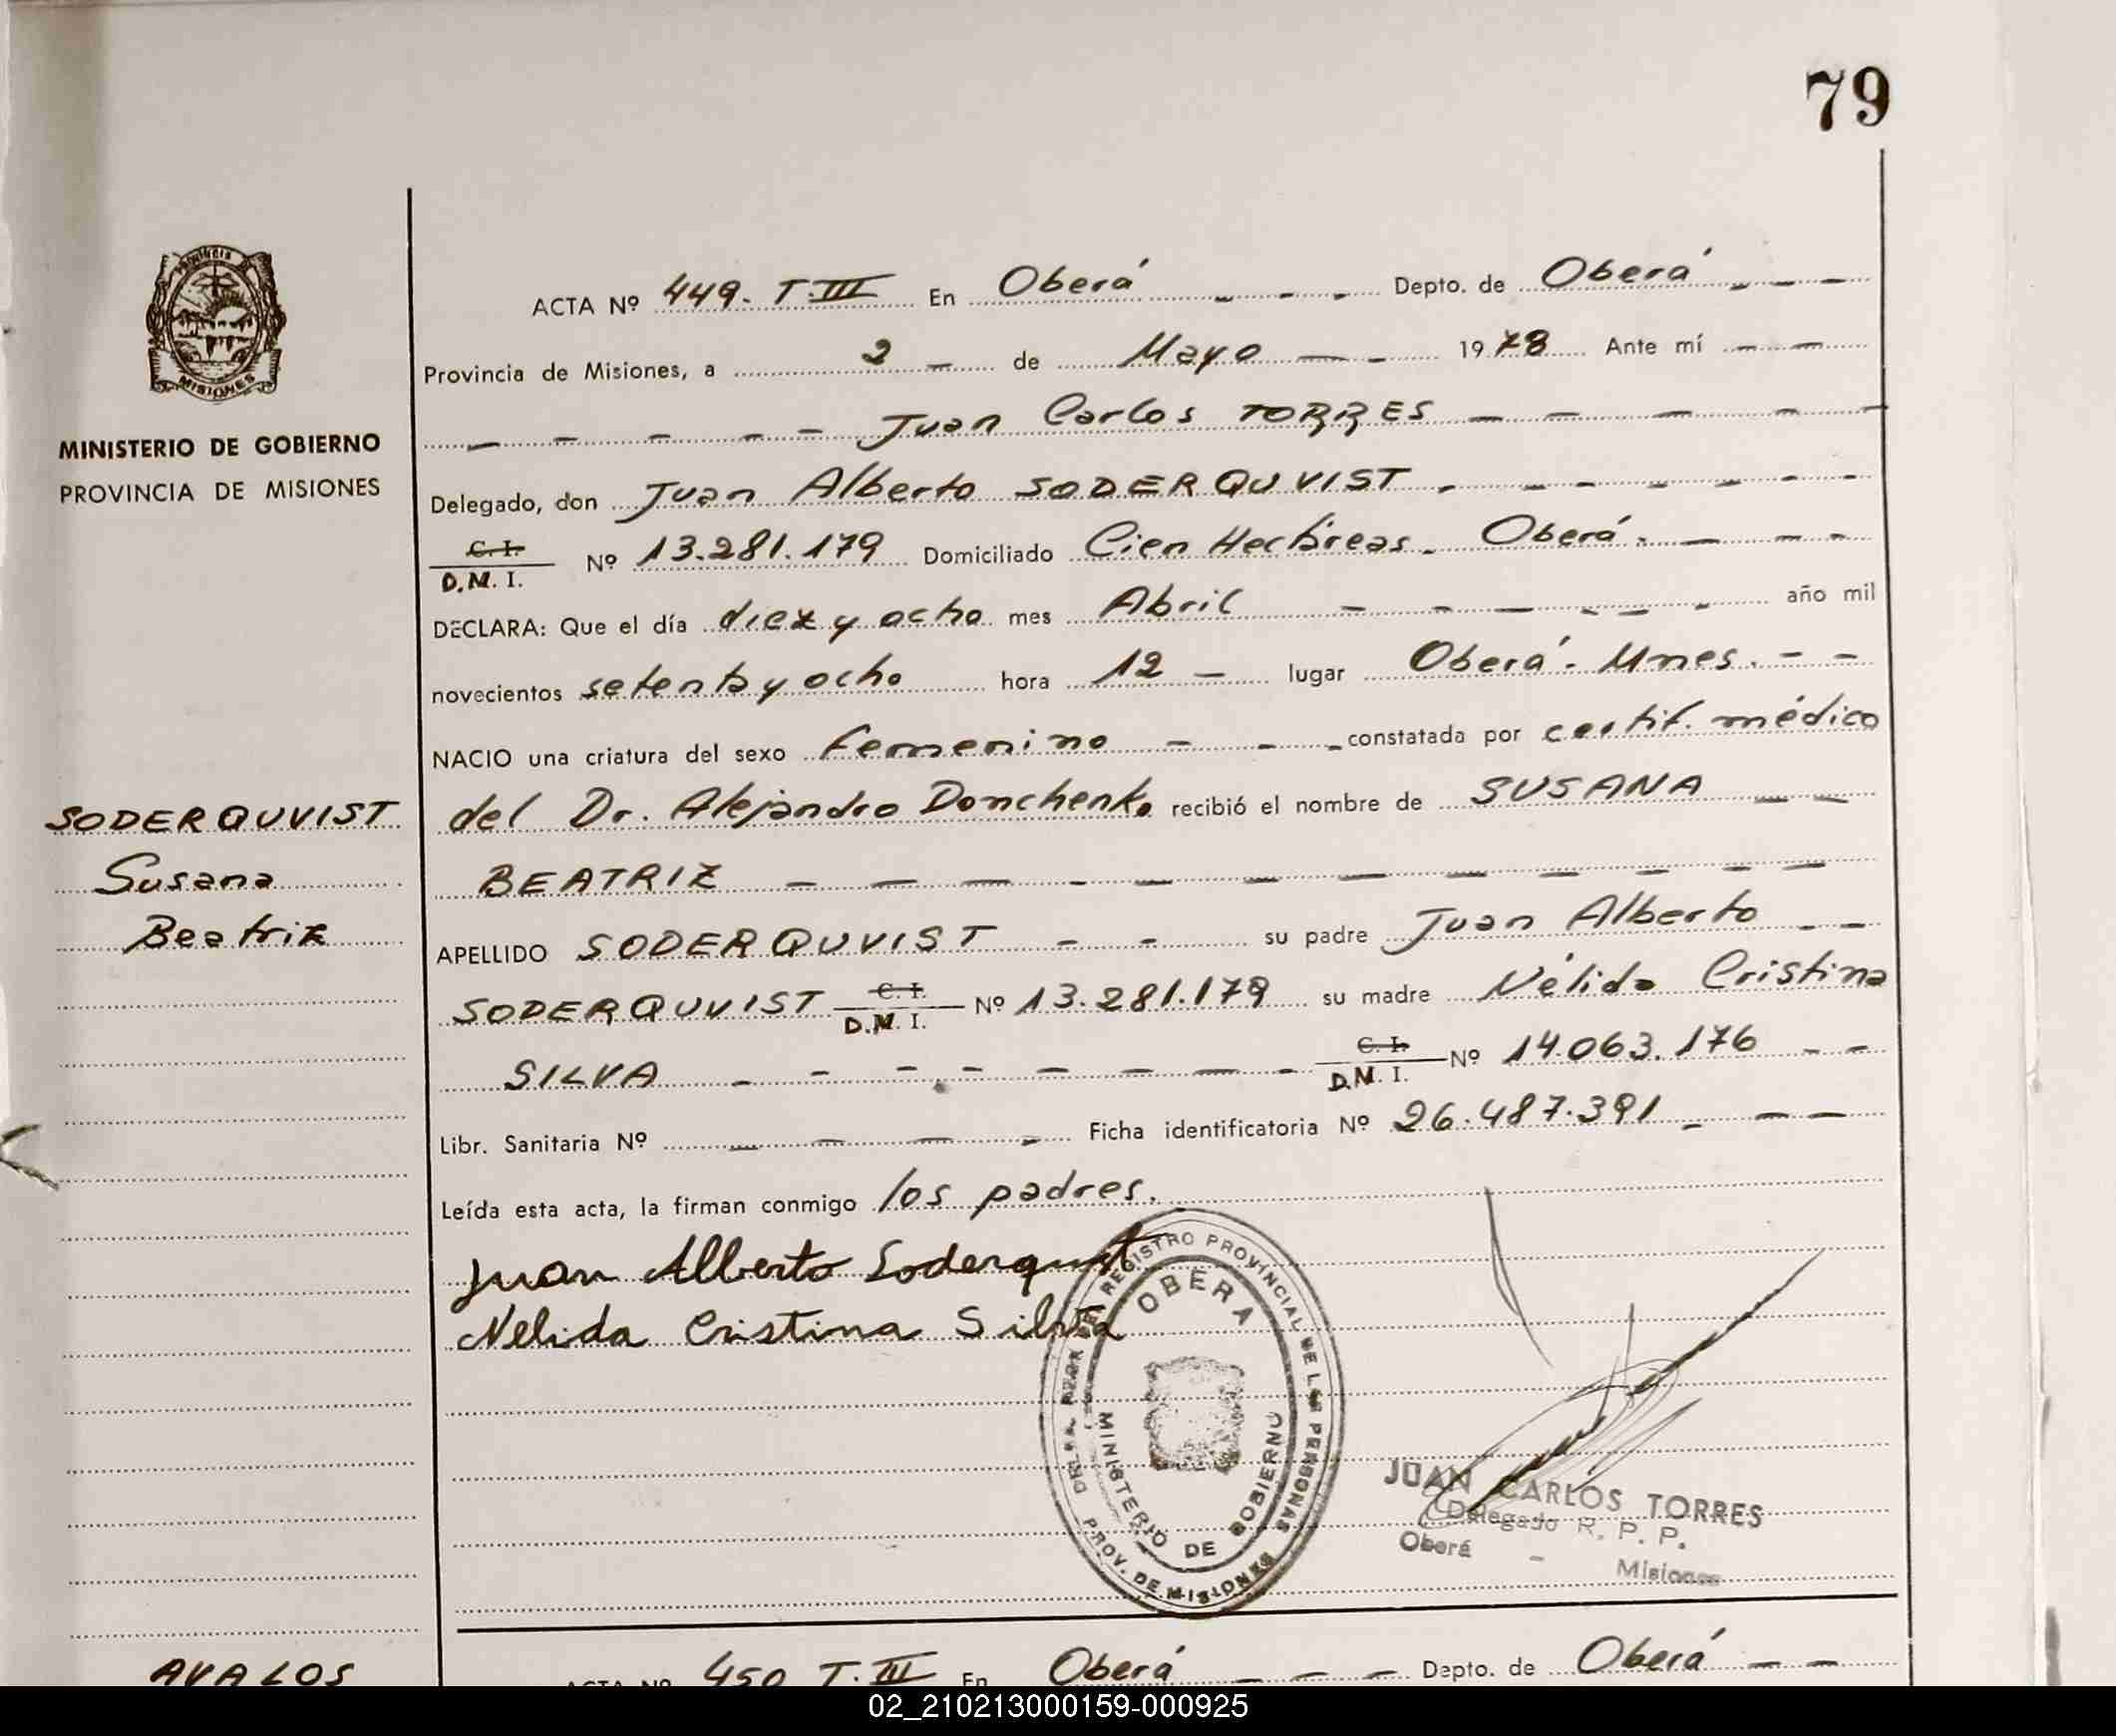 79
PROVINCIA DE
MISIONES
MINISTERIO DE GOBIERNO
PROVINCIA DE MISIONES
ACTA Nº 449. T. III En Oberá Depto. de Oberá
Provincia de Misiones, a 2 de Mayo 1978 Ante mí
Juan Carlos TORRES
Delegado, don Juan Alberto SODERQUVIST
C. I.
D.M. I. Nº 13.281.179 Domiciliado Cien Hectáreas. Oberá.
DECLARA: Que el día diez y ocho mes Abril año mil
novecientos setenta y ocho hora 12 lugar Oberá. Mnes.
NACIO una criatura del sexo femenino constatada por certif. médico
SODERQUVIST
Susana
Beatriz
del Dr. Alejandro Donchenko recibió el nombre de SUSANA
BEATRIZ
APELLIDO SODERQUVIST su padre Juan Alberto
SODERQUVIST C. I. D.M. I. Nº 13.281.179 su madre Nélida Cristina
SILVA C. I. D.M. I. Nº 14.063.176
Libr. Sanitaria Nº Ficha identificatoria Nº 26.487.391
Leída esta acta, la firman conmigo los padres.
Juan Alberto Soderquist
Nelida Cristina Silva
REGISTRO PROVINCIAL DE LAS PERSONAS
PROV. DE MISIONES
OBERA
MINISTERIO DE GOBIERNO
JUAN CARLOS TORRES
Delegado R. P. P.
Oberá - Misiones
AVALOS
ACTA Nº 450 T. III En Oberá Depto. de Oberá
02_210213000159-000925